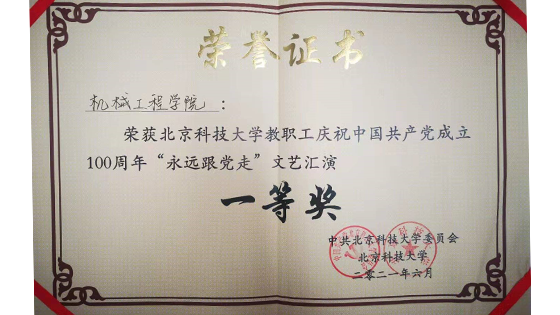 荣誉证书
机械工程学院：
荣获北京科技大学教职工庆祝中国共产党成立
100周年“永远跟党走”文艺汇演
一等奖
中共北京科技大学委员会
北京科技大学
二〇二一年六月